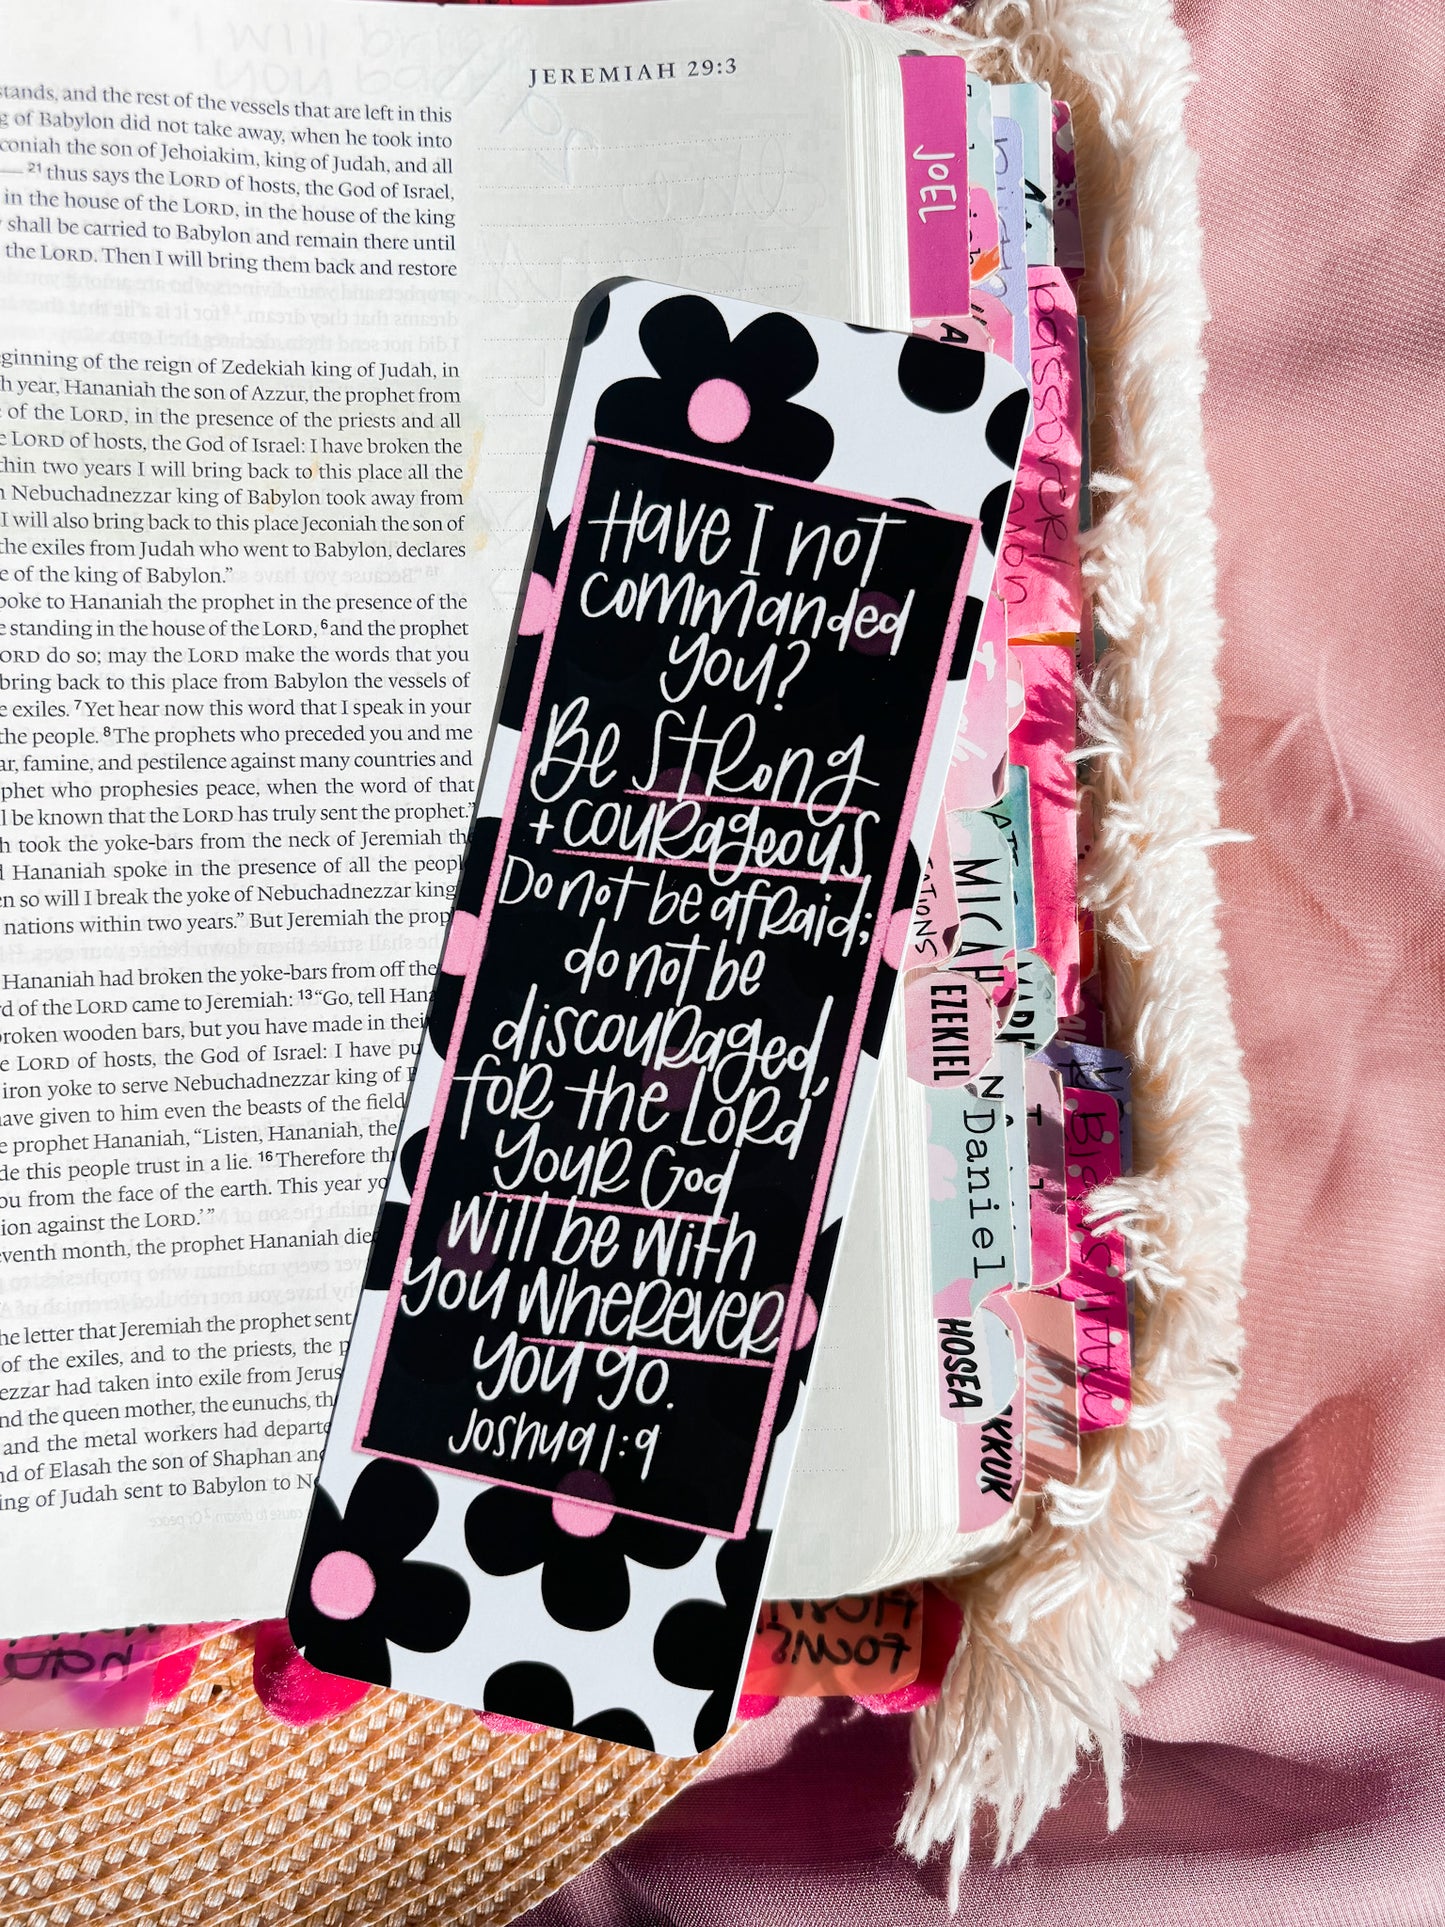 JEREMIAH 29:3
stands, and the rest of the vessels that are left in this
g of Babylon did not take away, when he took into
coniah the son of Jehoiakim, king of Judah, and all
— 21 thus says the LORD of hosts, the God of Israel,
in the house of the LORD, in the house of the king
shall be carried to Babylon and remain there until
the LORD. Then I will bring them back and restore
ginning of the reign of Zedekiah king of Judah, in
h year, Hananiah the son of Azzur, the prophet from
of the LORD, in the presence of the priests and all
e LORD of hosts, the God of Israel: I have broken the
thin two years I will bring back to this place all the
h Nebuchadnezzar king of Babylon took away from
I will also bring back to this place Jeconiah the son of
the exiles from Judah who went to Babylon, declares
e of the king of Babylon.”
poke to Hananiah the prophet in the presence of the
e standing in the house of the LORD, 6 and the prophet
ORD do so; may the LORD make the words that you
bring back to this place from Babylon the vessels of
e exiles. 7 Yet hear now this word that I speak in your
the people. 8 The prophets who preceded you and me
ar, famine, and pestilence against many countries and
phet who prophesies peace, when the word of that
l be known that the LORD has truly sent the prophet.”
h took the yoke-bars from the neck of Jeremiah the
d Hananiah spoke in the presence of all the peopl
en so will I break the yoke of Nebuchadnezzar king
nations within two years.” But Jeremiah the prop
Hananiah had broken the yoke-bars from off the
rd of the LORD came to Jeremiah: 13 “Go, tell Hana
broken wooden bars, but you have made in thei
e LORD of hosts, the God of Israel: I have pu
iron yoke to serve Nebuchadnezzar king of B
have given to him even the beasts of the field
e prophet Hananiah, “Listen, Hananiah, the
de this people trust in a lie. 16 Therefore th
ou from the face of the earth. This year yo
ion against the LORD.’”
eventh month, the prophet Hananiah die
he letter that Jeremiah the prophet sent
of the exiles, and to the priests, the p
ezzar had taken into exile from Jerus
nd the queen mother, the eunuchs, th
and the metal workers had departe
nd of Elasah the son of Shaphan and
ing of Judah sent to Babylon to Ne
Have I not
commanded
you?
Be strong
+ courageous
Do not be afraid;
do not be
discouraged,
for the Lord
your God
will be with
you wherever
you go.
Joshua 1:9
JOEL
MICAH
EZEKIEL
Daniel
HOSEA